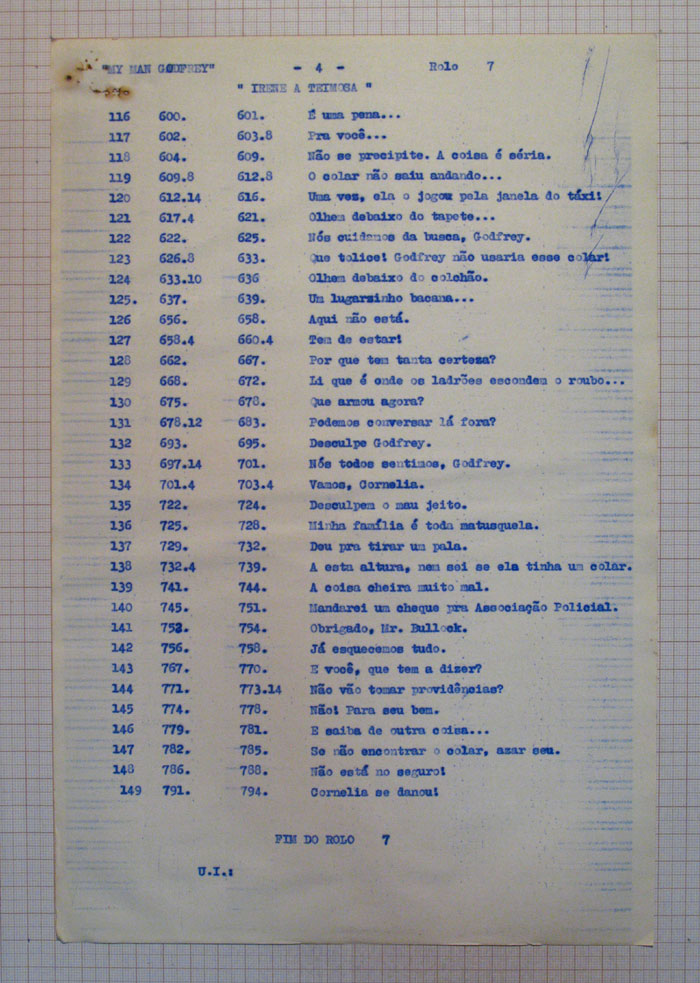 "MY MAN GODFREY" - 4 - Rolo 7
" IRENE A TEIMOSA "
116 600. 601. É uma pena...
117 602. 603.8 Pra você...
118 604. 609. Não se precipite. A coisa é séria.
119 609.8 612.8 O colar não saiu andando...
120 612.14 616. Uma vez, ela o jogou pela janela do táxi!
121 617.4 621. Olhem debaixo do tapete...
122 622. 625. Nós cuidamos da busca, Godfrey.
123 626.8 633. Que tolice! Godfrey não usaria esse colar!
124 633.10 636 Olhem debaixo do colchão.
125. 637. 639. Um lugarzinho bacana...
126 656. 658. Aqui não está.
127 658.4 660.4 Tem de estar!
128 662. 667. Por que tem tanta certeza?
129 668. 672. Li que é onde os ladrões escondem o roubo...
130 675. 678. Que armou agora?
131 678.12 683. Podemos conversar lá fora?
132 693. 695. Desculpe Godfrey.
133 697.14 701. Nós todos sentimos, Godfrey.
134 701.4 703.4 Vamos, Cornelia.
135 722. 724. Desculpem o mau jeito.
136 725. 728. Minha família é toda matusquela.
137 729. 732. Deu pra tirar um pala.
138 732.4 739. A esta altura, nem sei se ela tinha um colar.
139 741. 744. A coisa cheira muito mal.
140 745. 751. Mandarei um cheque pra Associação Policial.
141 752. 754. Obrigado, Mr. Bullock.
142 756. 758. Já esquecemos tudo.
143 767. 770. E você, que tem a dizer?
144 771. 773.14 Não vão tomar providências?
145 774. 778. Não! Para seu bem.
146 779. 781. E saiba de outra coisa...
147 782. 785. Se não encontrar o colar, azar seu.
148 786. 788. Não está no seguro!
149 791. 794. Cornelia se danou!
FIM DO ROLO 7
U.I.: